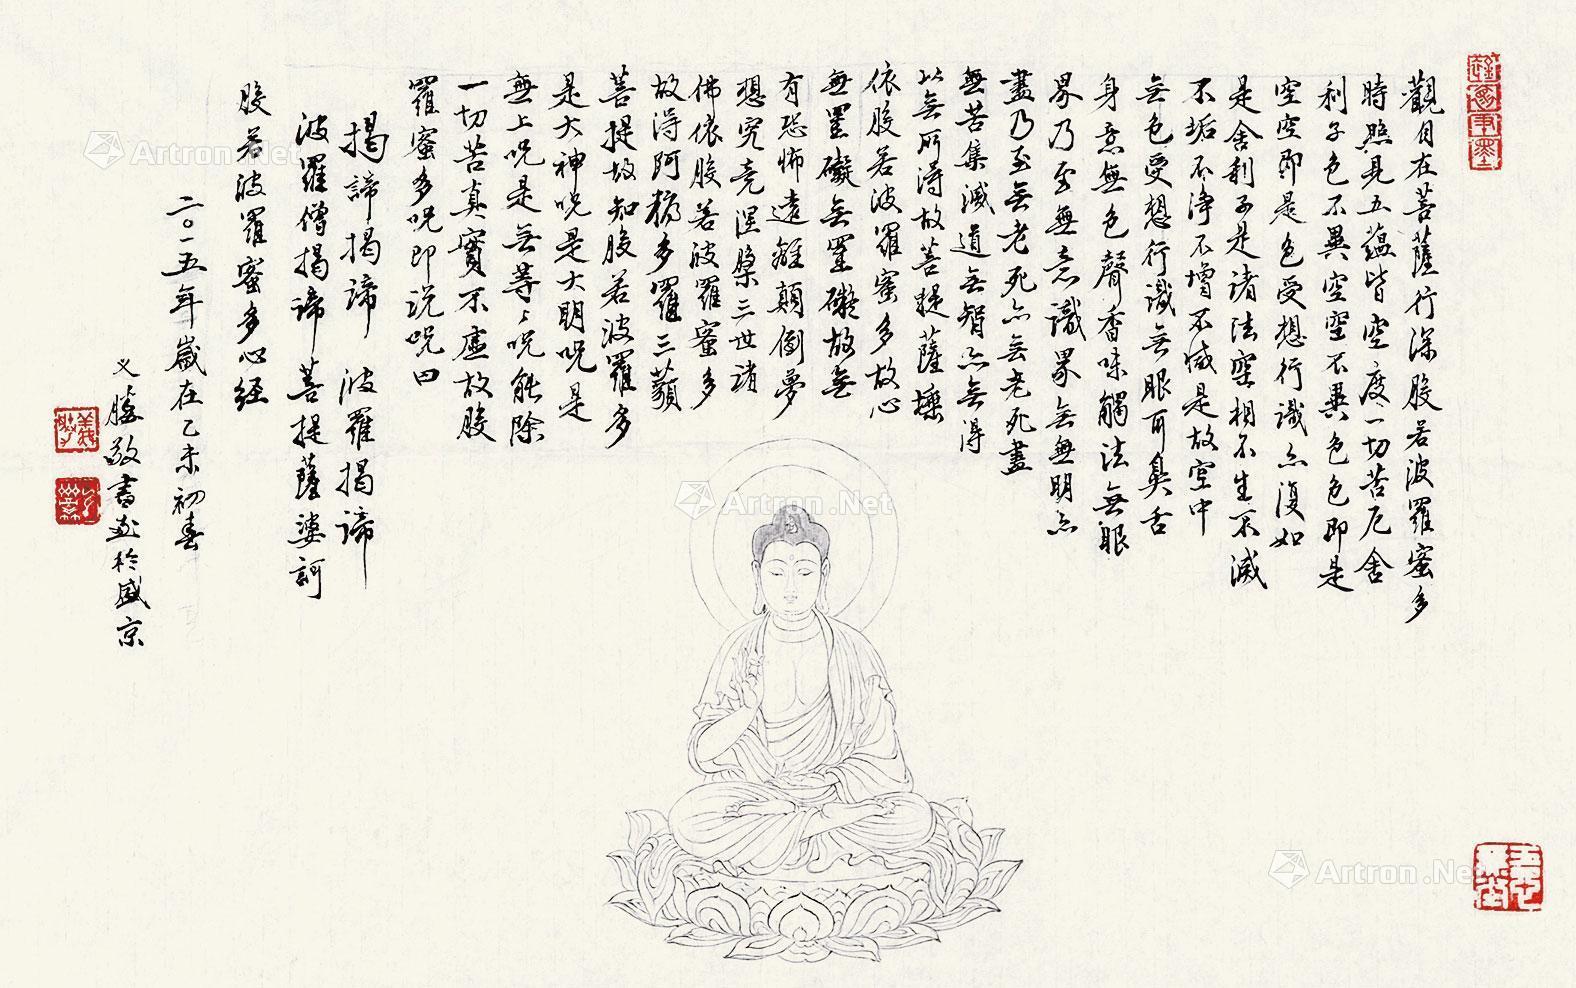 觀自在菩薩行深般若波羅蜜多
時照見五蘊皆空度一切苦厄舍
利子色不異空空不異色色即是
空空即是色受想行識亦復如
是舍利子是諸法空相不生不滅
不垢不淨不增不減是故空中
無色受想行識無眼耳鼻舌
身意無色聲香味觸法無眼
界乃至無意識界無無明亦
盡乃至無老死亦無老死盡
無苦集滅道無智亦無得
以無所得故菩提薩埵
依般若波羅蜜多故心
無罣礙無罣礙故無
有恐怖遠離顛倒夢
想究竟涅槃三世諸
佛依般若波羅蜜多
故得阿耨多羅三藐
菩提故知般若波羅多
是大神咒是大明咒是
無上咒是無等々咒能除
一切苦真實不虛故般
羅蜜多咒即說咒曰
揭諦揭諦 波羅揭諦
波羅僧揭諦菩提薩婆訶
般若波羅蜜多心經
二〇一五年歲在乙未初春
义勝敬書画於盛京
Artron.Net
Artron.Net
Artron.Net
Artron.Net